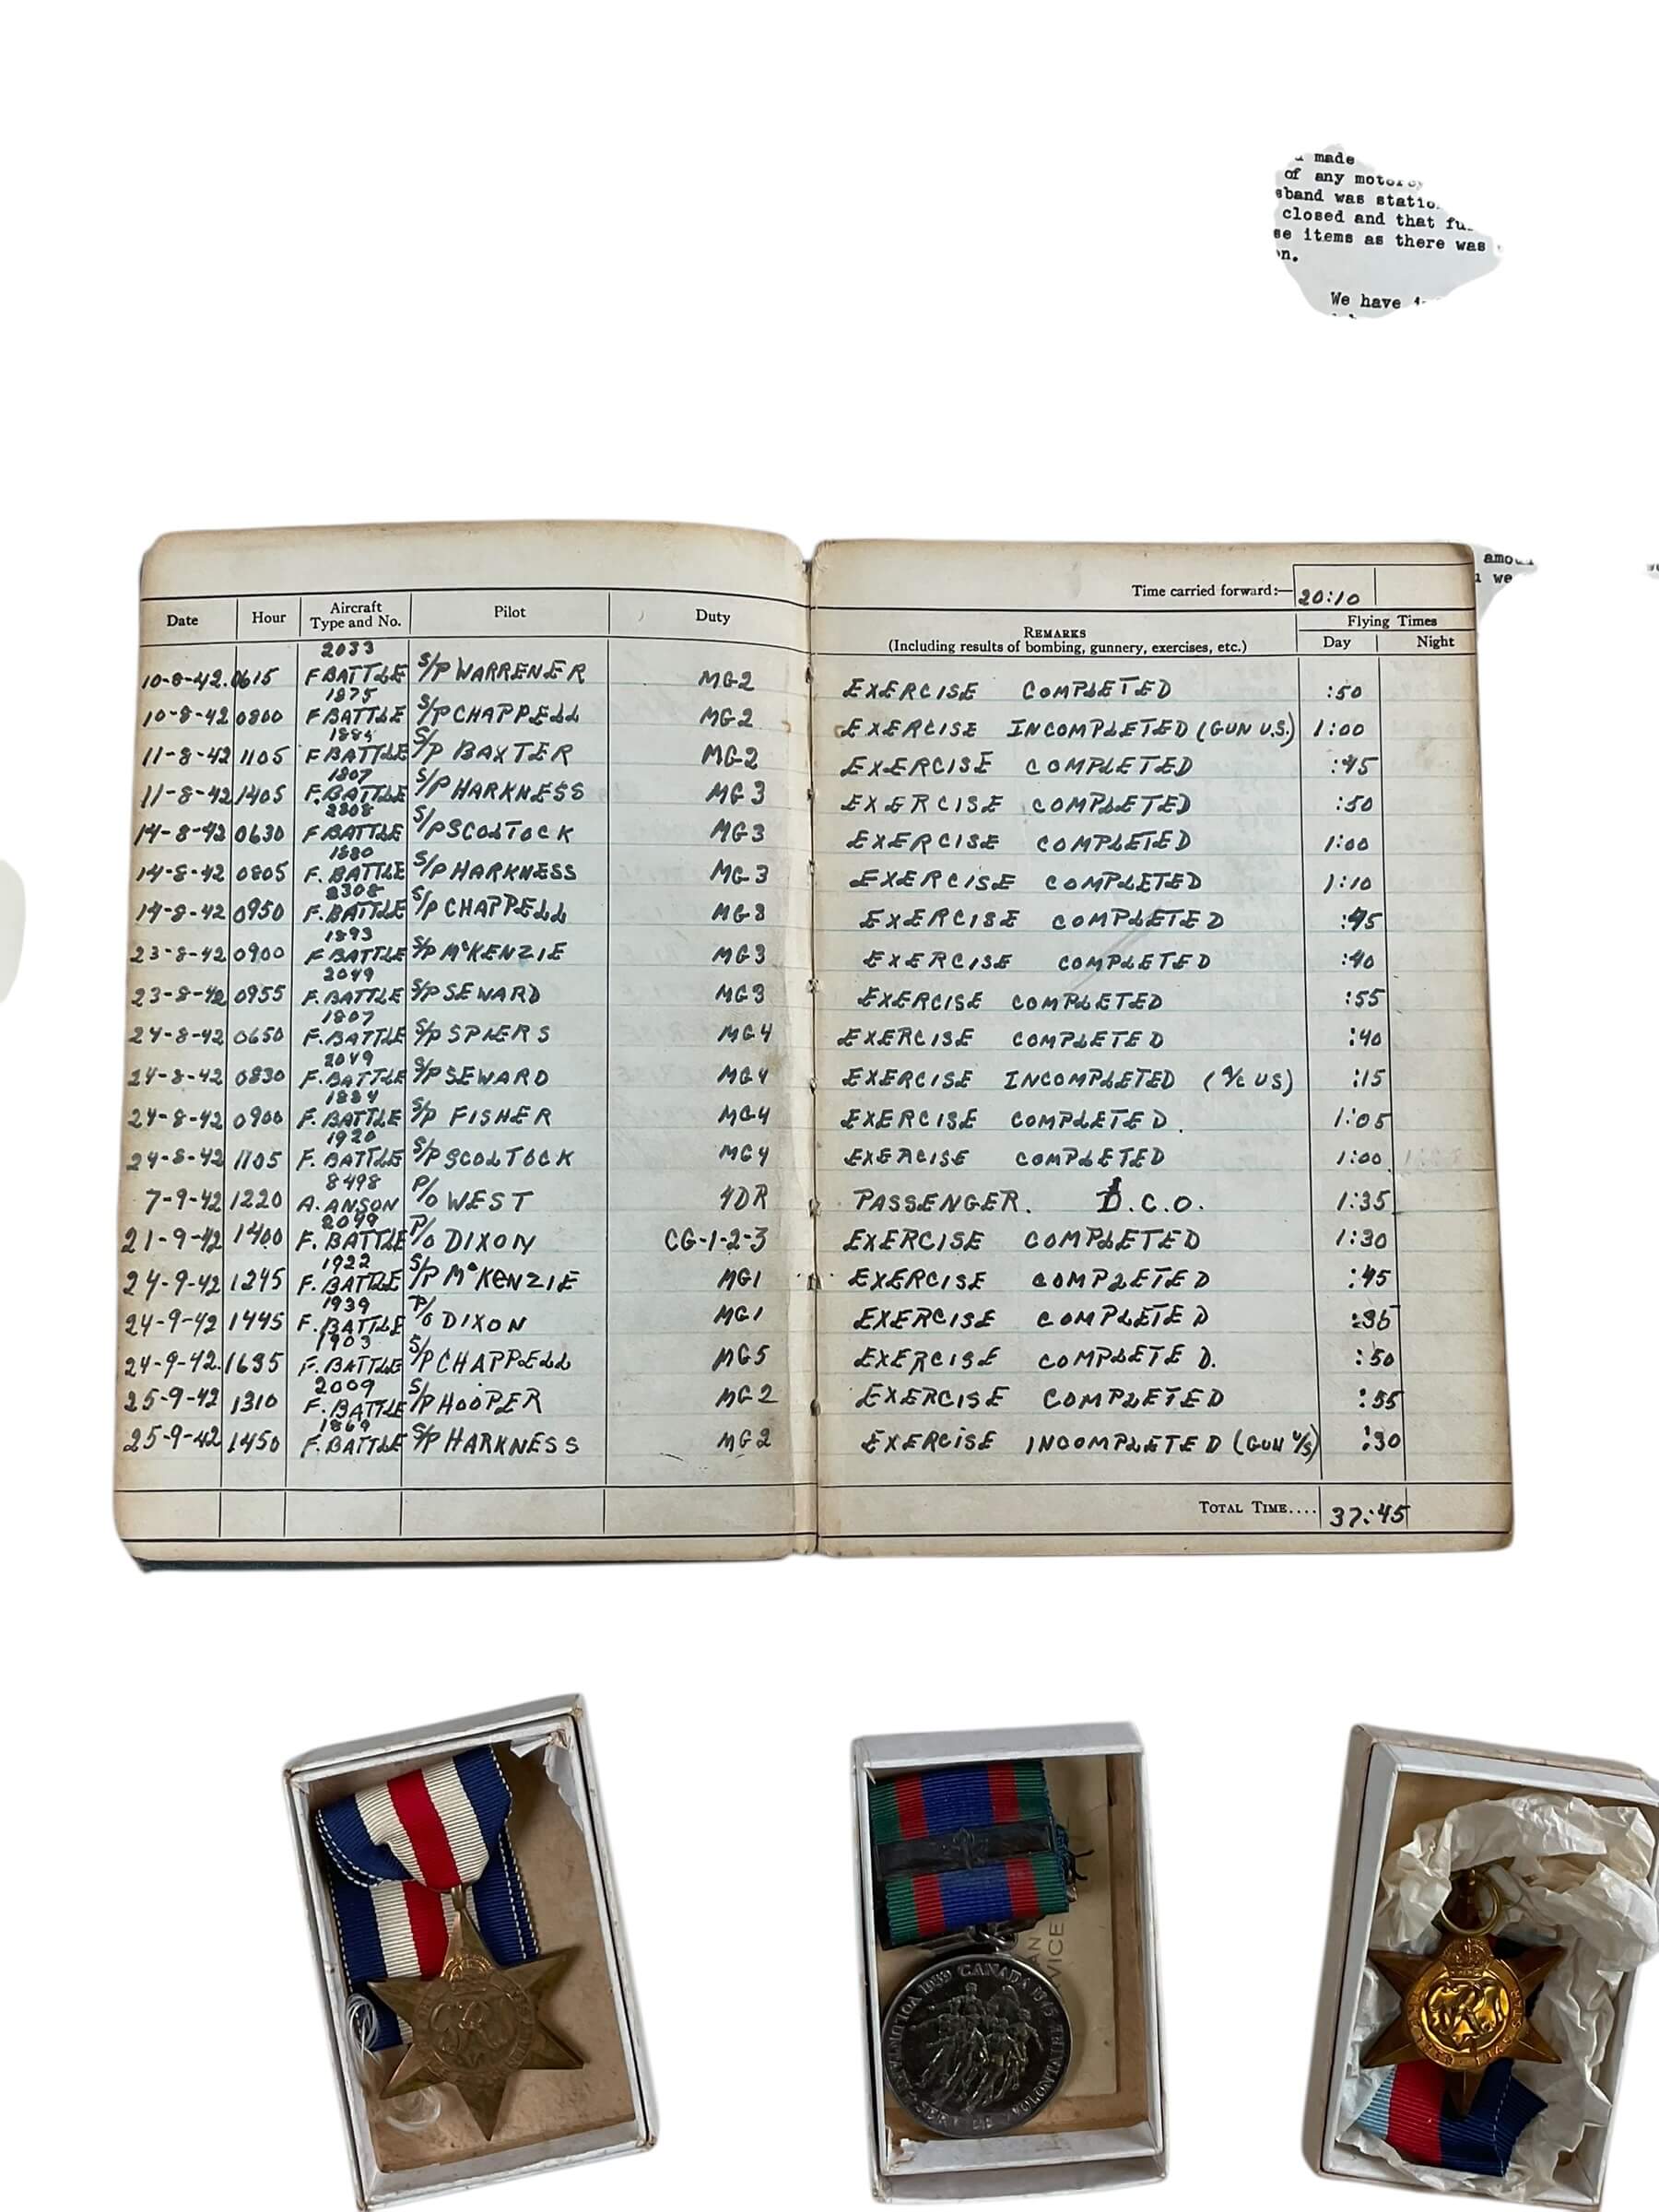 made
of any motorcy
sband was statio
closed and that fu
se items as there was
on.
We have
amou
we
Time carried forward:— 20:10
Date Hour Aircraft Type and No. Pilot Duty REMARKS (Including results of bombing, gunnery, exercises, etc.) Flying Times Day Night
10-8-42. 0615 2033 F BATTLE S/P WARRENER MG2 EXERCISE COMPLETED :50
10-8-42 0800 1875 F BATTLE S/P CHAPPELL MG2 EXERCISE INCOMPLETED (GUN U.S.) 1:00
11-8-42 1105 1884 F BATTLE S/P BAXTER MG2 EXERCISE COMPLETED :45
11-8-42 1405 1807 F. BATTLE S/P HARKNESS MG3 EXERCISE COMPLETED :50
14-8-42 0630 2308 F BATTLE S/P SCOLTOCK MG3 EXERCISE COMPLETED 1:00
14-8-42 0805 1880 F. BATTLE S/P HARKNESS MG3 EXERCISE COMPLETED 1:10
14-8-42 0950 2308 F. BATTLE S/P CHAPPELL MG3 EXERCISE COMPLETED :45
23-8-42 0900 1893 F BATTLE S/P McKENZIE MG3 EXERCISE COMPLETED :40
23-8-42 0955 2049 F. BATTLE S/P SEWARD MG3 EXERCISE COMPLETED :55
24-8-42 0650 1807 F. BATTLE S/P SPIERS MG4 EXERCISE COMPLETED :40
24-8-42 0830 2049 F. BATTLE S/P SEWARD MG4 EXERCISE INCOMPLETED (A/C US) :15
24-8-42 0900 1884 F. BATTLE S/P FISHER MG4 EXERCISE COMPLETED. 1:05
24-8-42 1105 1920 F. BATTLE S/P SCOLTOCK MG4 EXERCISE COMPLETED 1:00
7-9-42 1220 8498 A. ANSON P/O WEST 4DR PASSENGER. D.C.O. 1:35
21-9-42 1400 2099 F. BATTLE P/O DIXON CG-1-2-3 EXERCISE COMPLETED 1:30
24-9-42 1245 1922 F. BATTLE S/P McKENZIE MG1 EXERCISE COMPLETED :45
24-9-42 1445 1939 F. BATTLE P/O DIXON MG1 EXERCISE COMPLETED :35
24-9-42. 1635 1903 F. BATTLE S/P CHAPPELL MG5 EXERCISE COMPLETED. :50
25-9-42 1310 2009 F. BATTLE S/P HOOPER MG2 EXERCISE COMPLETED :55
25-9-42 1450 1869 F. BATTLE S/P HARKNESS MG2 EXERCISE INCOMPLETED (GUN U/S) :30
TOTAL TIME.... 37:45
1939 CANADA 1945
VOLONTAIRE